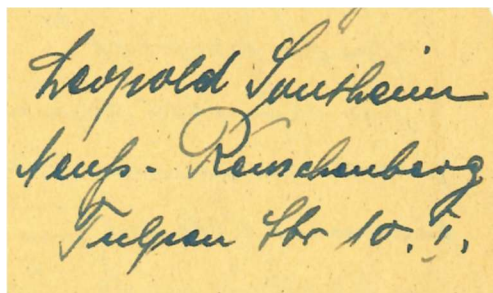 Leopold Sontheim
Neuß- Reuschenberg
Tulpen Str 10. I.